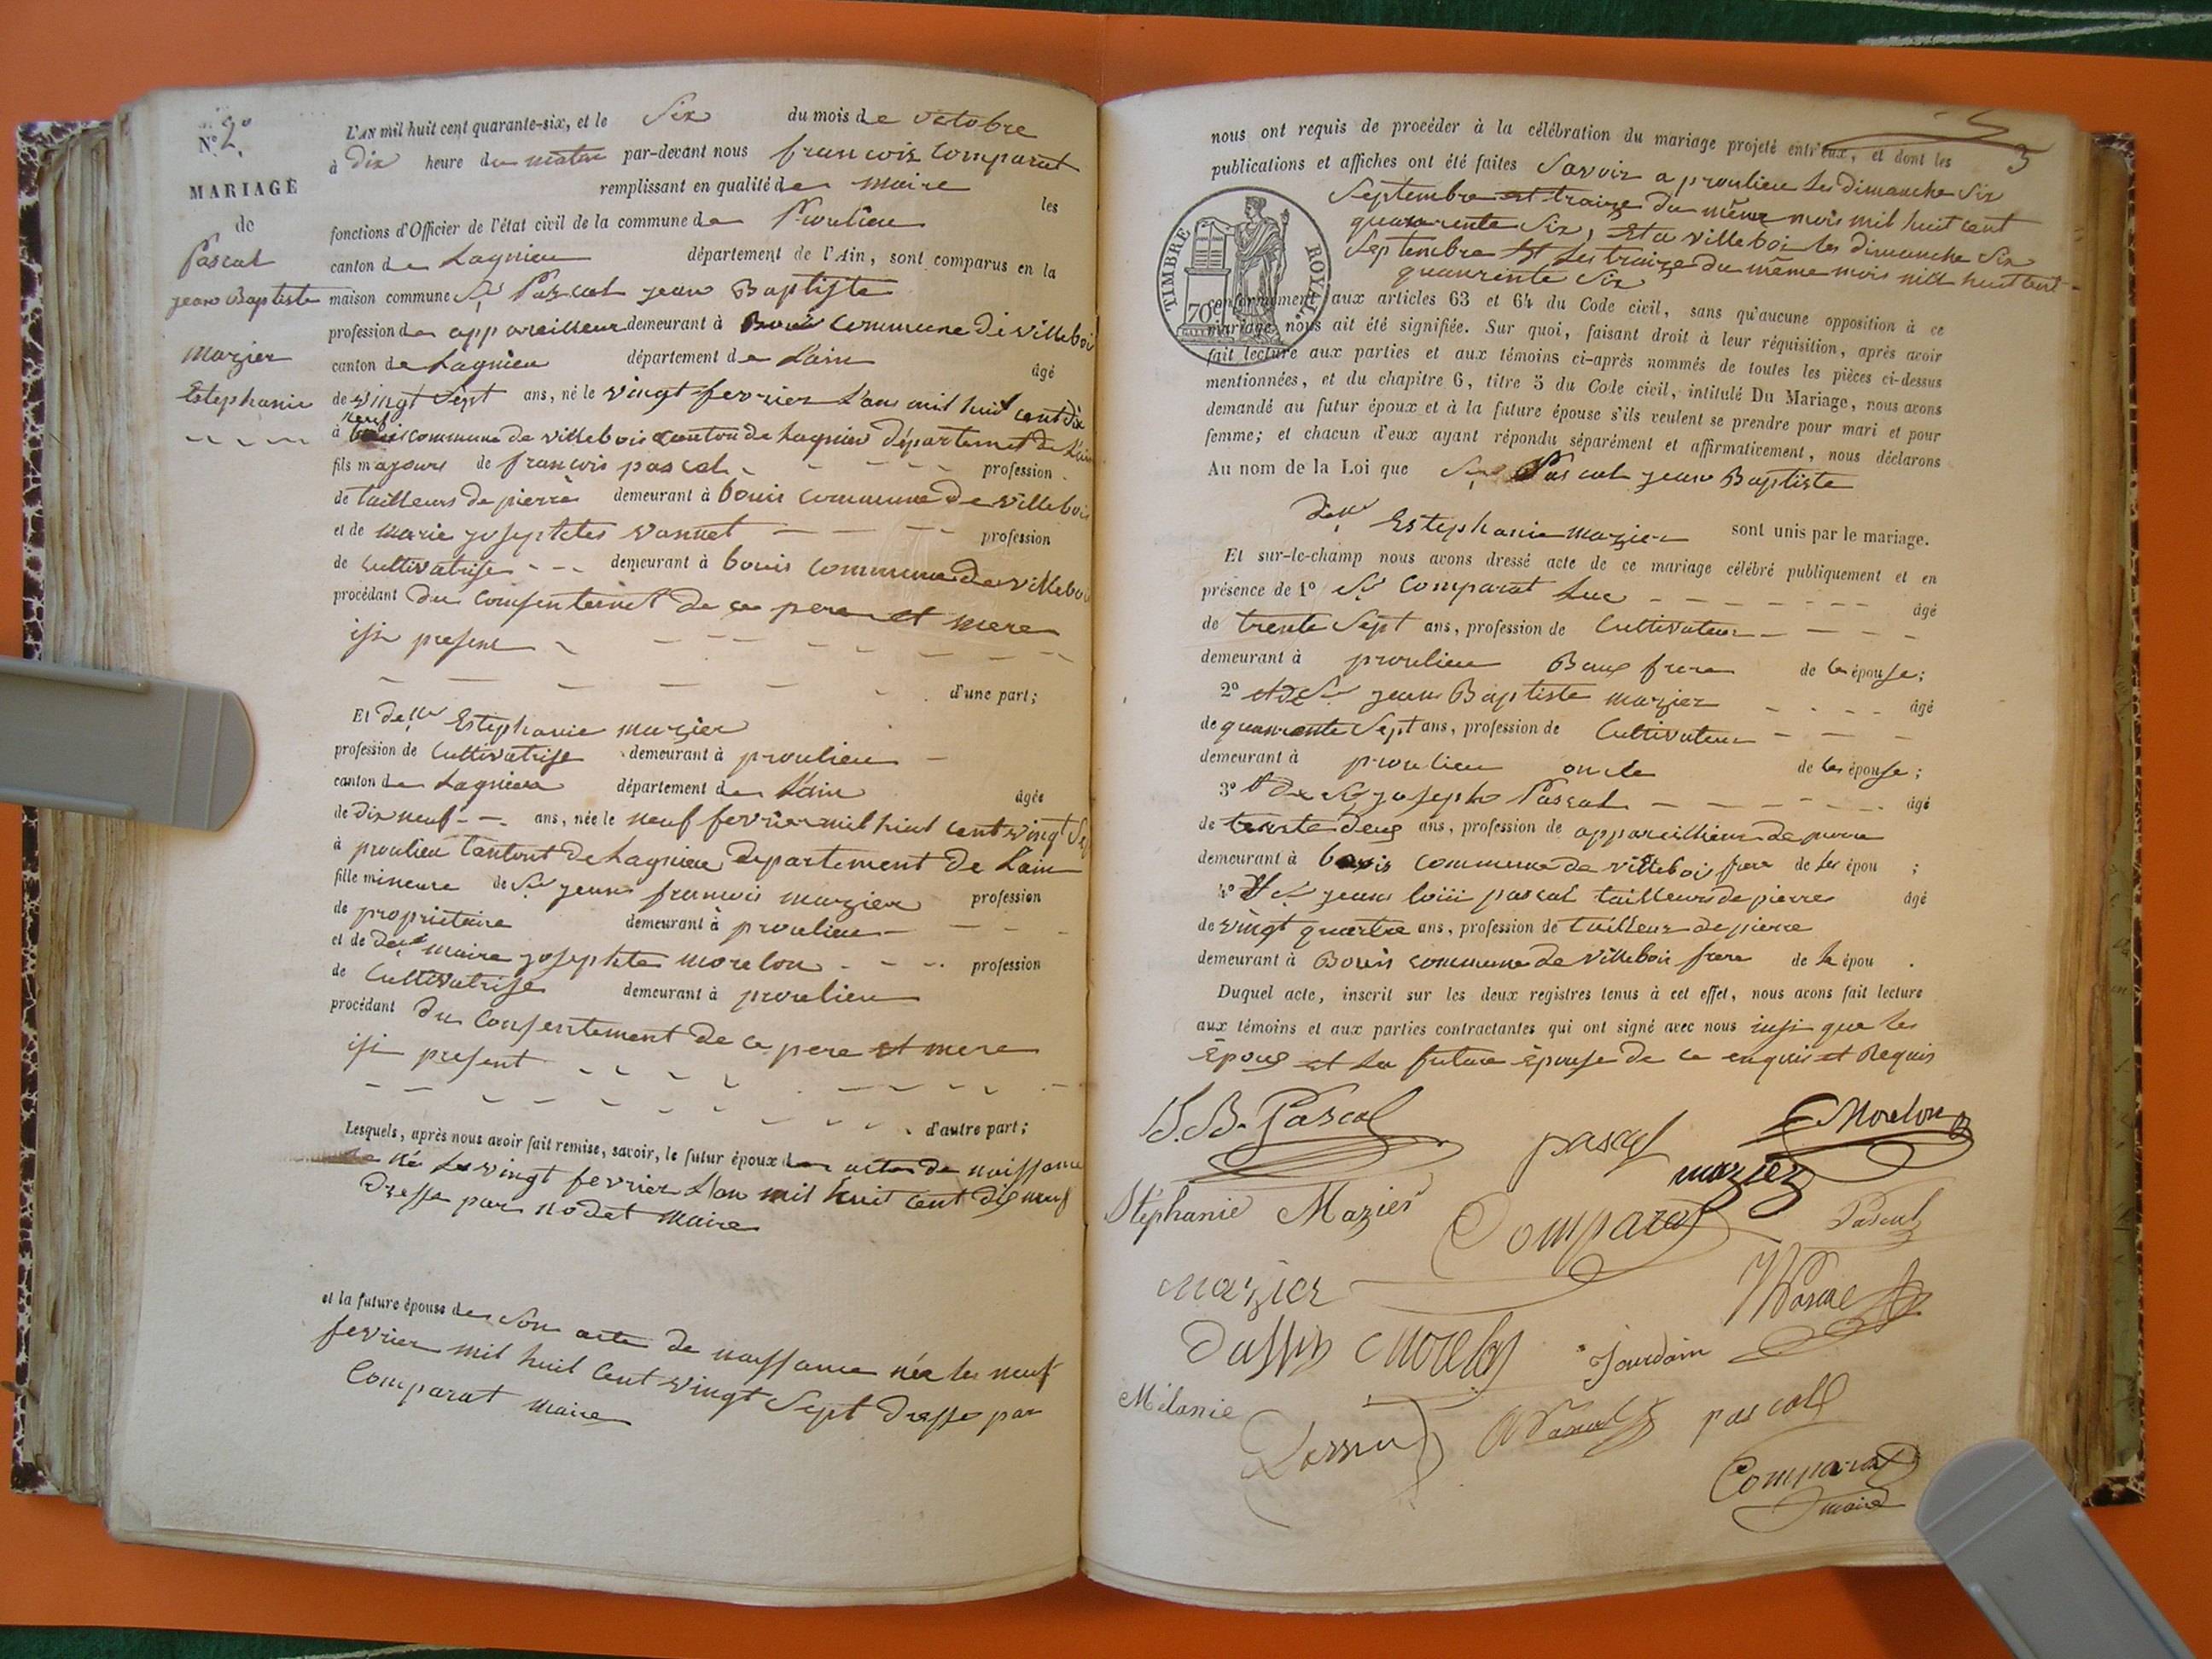 Nº 2º
MARIAGE
de
Pascal
jean Baptiste
Mazier
Estephanie
L'AN mil huit cent quarante-six, et le Six du mois de octobre
à dix heure du matin par-devant nous francois Comparat
remplissant en qualité de maire les
fonctions d'Officier de l'état civil de la commune de Proulieu
canton de Lagnieu département de l'Ain, sont comparus en la
maison commune Sr Pascal jean Baptiste
profession de appareilleur demeurant à Bouis commune de villeboi
canton de Lagnieu département de Lain âgé
de vingt Sept ans, né le vingt fevrier L'an mil huit cent dix
neuf
à bouis commune de villebois canton de Lagnieu département de L'ain
fils majeure de françois pascal profession
de tailleurs de pierre demeurant à bouis commune de villebois
et de marie josephtes vannet profession
de Cultivatrise demeurant à bouis commune de villeboi
procédant du consentement de ce pere et mere
isi present
d'une part;
Et delle Estephanie mazier
profession de Cultivatrise demeurant à proulieu
canton de Lagnieu département de L'ain âgée
de dix neuf ans, née le neuf fevrier mil huit cent vingt Sep
à proulieu Cantont de Lagnieu departement de Lain
fille mineure de Sr jean francois mazier profession
de propriétaire demeurant à proulieu
et de delle maire josephte morelon profession
de Cultivatrise demeurant à proulieu
procédant du Consentement de ce pere et mere
isi present
d'autre part;
Lesquels, après nous avoir fait remise, savoir, le futur époux de acte de naissance
né Le vingt fevrier L'an mil huit cent dix neuf
dresse par nodet maire
et la future épouse de Son acte de naissance née le neuf
fevrier mil huit Cent vingt Sept dresse par
Comparat maire
3
nous ont requis de procéder à la célébration du mariage projeté entr'eux, et dont les
publications et affiches ont été faites Savoir a proulieu les dimanche Six
Septembre et traize du même mois mil huit cent
quararente Six, Et a villeboi les dimanche Six
Septembre Et les traize du même mois mill huit cent
quanrente Six
TIMBRE ROYAL
70c
conformément aux articles 63 et 64 du Code civil, sans qu'aucune opposition à ce
mariage nous ait été signifiée. Sur quoi, faisant droit à leur réquisition, après avoir
fait lecture aux parties et aux témoins ci-après nommés de toutes les pièces ci-dessus
mentionnées, et du chapitre 6, titre 5 du Code civil, intitulé Du Mariage, nous avons
demandé au futur époux et à la future épouse s'ils veulent se prendre pour mari et pour
femme; et chacun d'eux ayant répondu séparément et affirmativement, nous déclarons
Au nom de la Loi que Sr Pascal jean Baptiste
delle Estephanie mazier sont unis par le mariage.
Et sur-le-champ nous avons dressé acte de ce mariage célébré publiquement et en
présence de 1º Sr Comparat Luc âgé
de trente Sept ans, profession de Cultivateur
demeurant à proulieu Baux frere de la épouse;
2º et de Sr jean Baptiste mazier âgé
de quanrante Sept ans, profession de Cultivateur
demeurant à proulieu oncle de la épouse;
3º Et de Sr josephe Pascal âgé
de trente deux ans, profession de appareillieur de pierre
demeurant à bouis commune de villeboi frere de Les épou ;
4º Et Sr jean louis pascal tailleurs de pierre âgé
de vingt quartre ans, profession de tailleur de pierre
demeurant à Bouis commune de villeboi frere de le épou .
Duquel acte, inscrit sur les deux registres tenus à cet effet, nous avons fait lecture
aux témoins et aux parties contractantes qui ont signé avec nous insi que les
époux et la future épouse de ce enquis et Requis
J.B. Pascal pascal Morelon
mazier
Stéphanie Mazier Comparat Pascal
mazier Pascal
Morelon Jourdain
Mélanie Pascal pascal
Comparat
maire